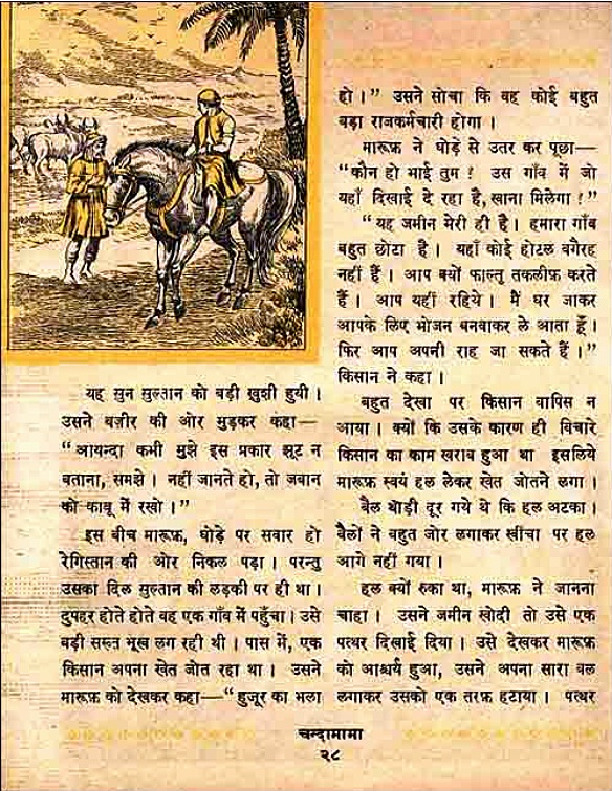 यह सुन सुल्तान को बड़ी खुशी हुयी ।
उसने वज़ीर की ओर मुड़कर कहा—
“आयन्दा कभी मुझे इस प्रकार झूट न
बताना, समझे । नहीं जानते हो, तो जबान
को काबू में रखो ।”
इस बीच मारूफ़, घोड़े पर सवार हो
रेगिस्तान की ओर निकल पड़ा । परन्तु
उसका दिल सुल्तान की लड़की पर ही था ।
दुपहर होते होते वह एक गाँव में पहुँचा । उसे
बड़ी सख्त भूख लग रही थी । पास में, एक
किसान अपना खेत जोत रहा था । उसने
मारूफ़ को देखकर कहा—“हुजूर का भला
हो ।” उसने सोचा कि वह कोई बहुत
बड़ा राजकर्मचारी होगा ।
मारूफ़ ने घोड़े से उतर कर पूछा—
“कौन हो भाई तुम ? उस गाँव में जो
यहाँ दिखाई दे रहा है, खाना मिलेगा ?”
“यह जमीन मेरी ही है । हमारा गाँव
बहुत छोटा है । यहाँ कोई होटल वगैरह
नहीं हैं । आप क्यों फाल्तु तकलीफ़ करते
हैं । आप यहीं रहिये । मैं घर जाकर
आपके लिए भोजन बनवाकर ले आता हूँ ।
फिर आप अपनी राह जा सकते हैं ।”
किसान ने कहा ।
बहुत देखा पर किसान वापिस न
आया । क्यों कि उसके कारण ही विचारे
किसान का काम खराब हुआ था इसलिये
मारूफ़ स्वयं हल लेकर खेत जोतने लगा ।
बैल थोड़ी दूर गये थे कि हल अटका ।
बैलों ने बहुत जोर लगाकर खींचा पर हल
आगे नहीं गया ।
हल क्यों रुका था, मारूफ़ ने जानना
चाहा । उसने जमीन खोदी तो उसे एक
पत्थर दिखाई दिया । उसे देखकर मारूफ़
को आश्चर्य हुआ, उसने अपना सारा बल
लगाकर उसको एक तरफ़ हटाया । पत्थर
चन्दामामा
२८